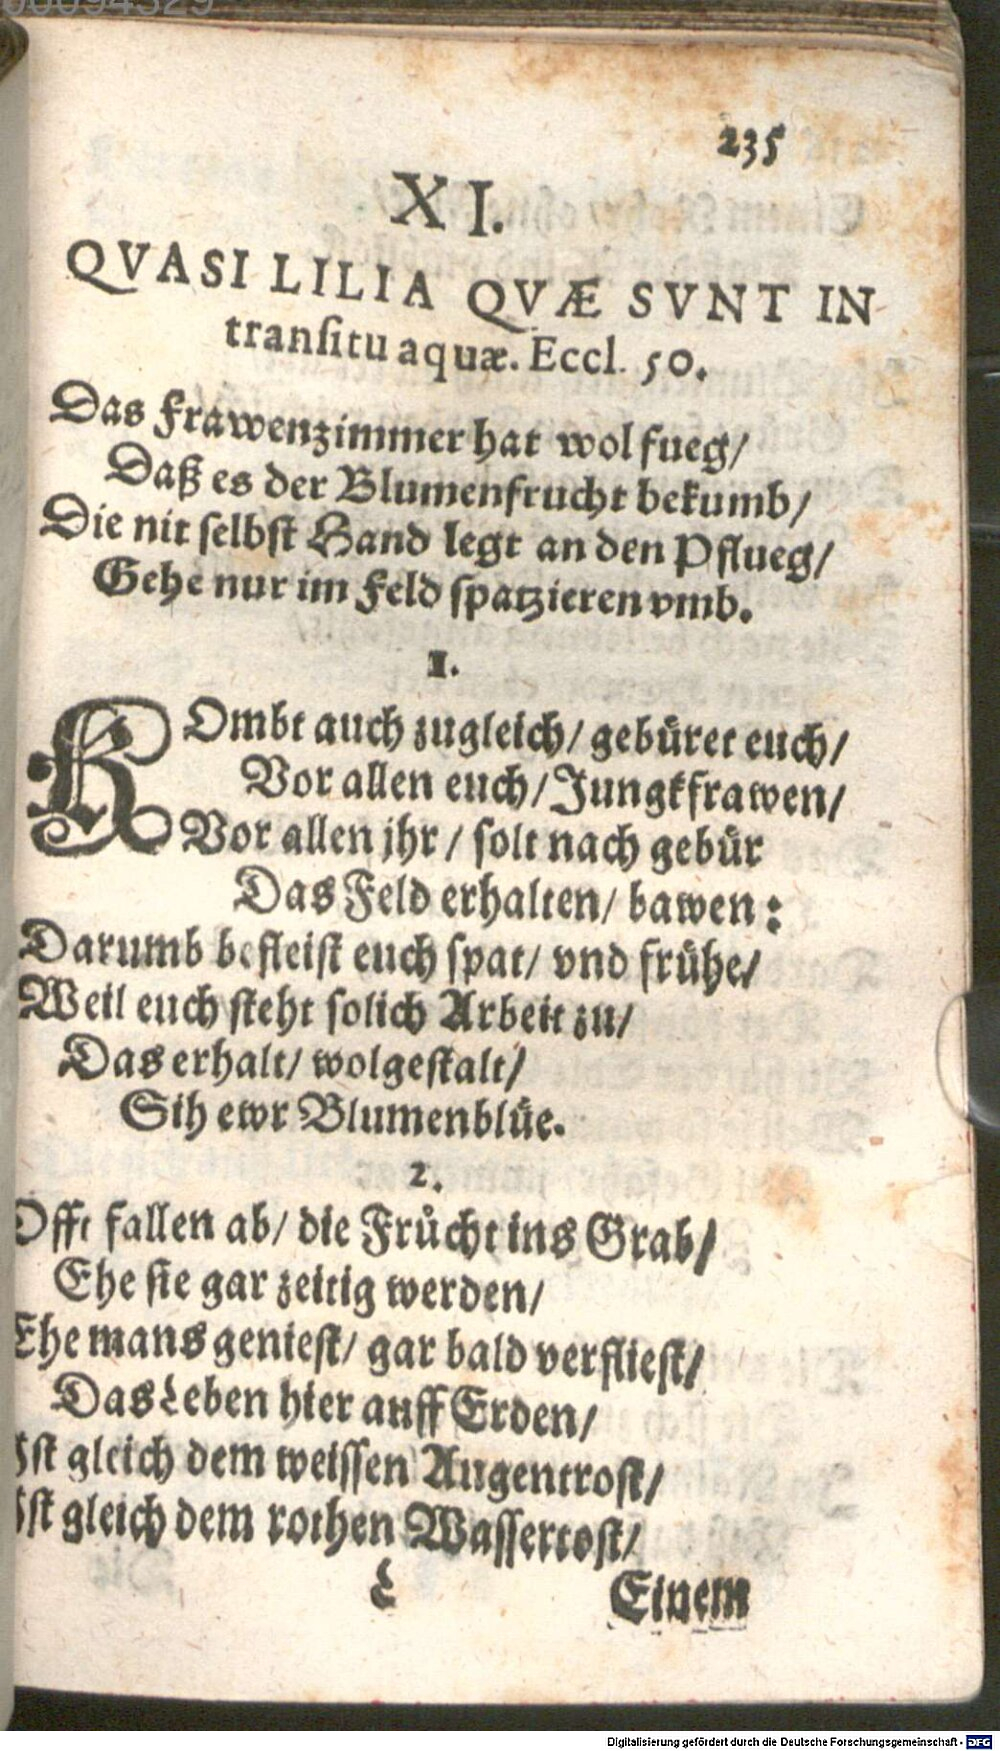 00094329
235
XI.
QVASI LILIA QVÆ SVNT IN
transitu aquæ. Eccl. 50.
Das Frawenzimmer hat wol fueg/
Daß es der Blumenfrucht bekumb/
Die nit selbst Hand legt an den Pflueg/
Gehe nur im Feld spatzieren vmb.
1.
KOmbt auch zugleich/ gebüret euch/
Vor allen euch/ Jungkfrawen/
Vor allen jhr/ solt nach gebür
Das Feld erhalten/ bawen:
Darumb befleist euch spat/ vnd frühe/
Weil euch steht solich Arbeit zu/
Das erhalt/ wolgestalt/
Sih ewr Blumenblüe.
2.
Offt fallen ab/ die Frücht ins Grab/
Ehe sie gar zeitig werden/
Ehe mans geniest/ gar bald verfliest/
Das Leben hier auff Erden/
Ist gleich dem weissen Augentrost/
Ist gleich dem rothen Wasserrost/
L Einem
Digitalisierung gefördert durch die Deutsche Forschungsgemeinschaft - DFG